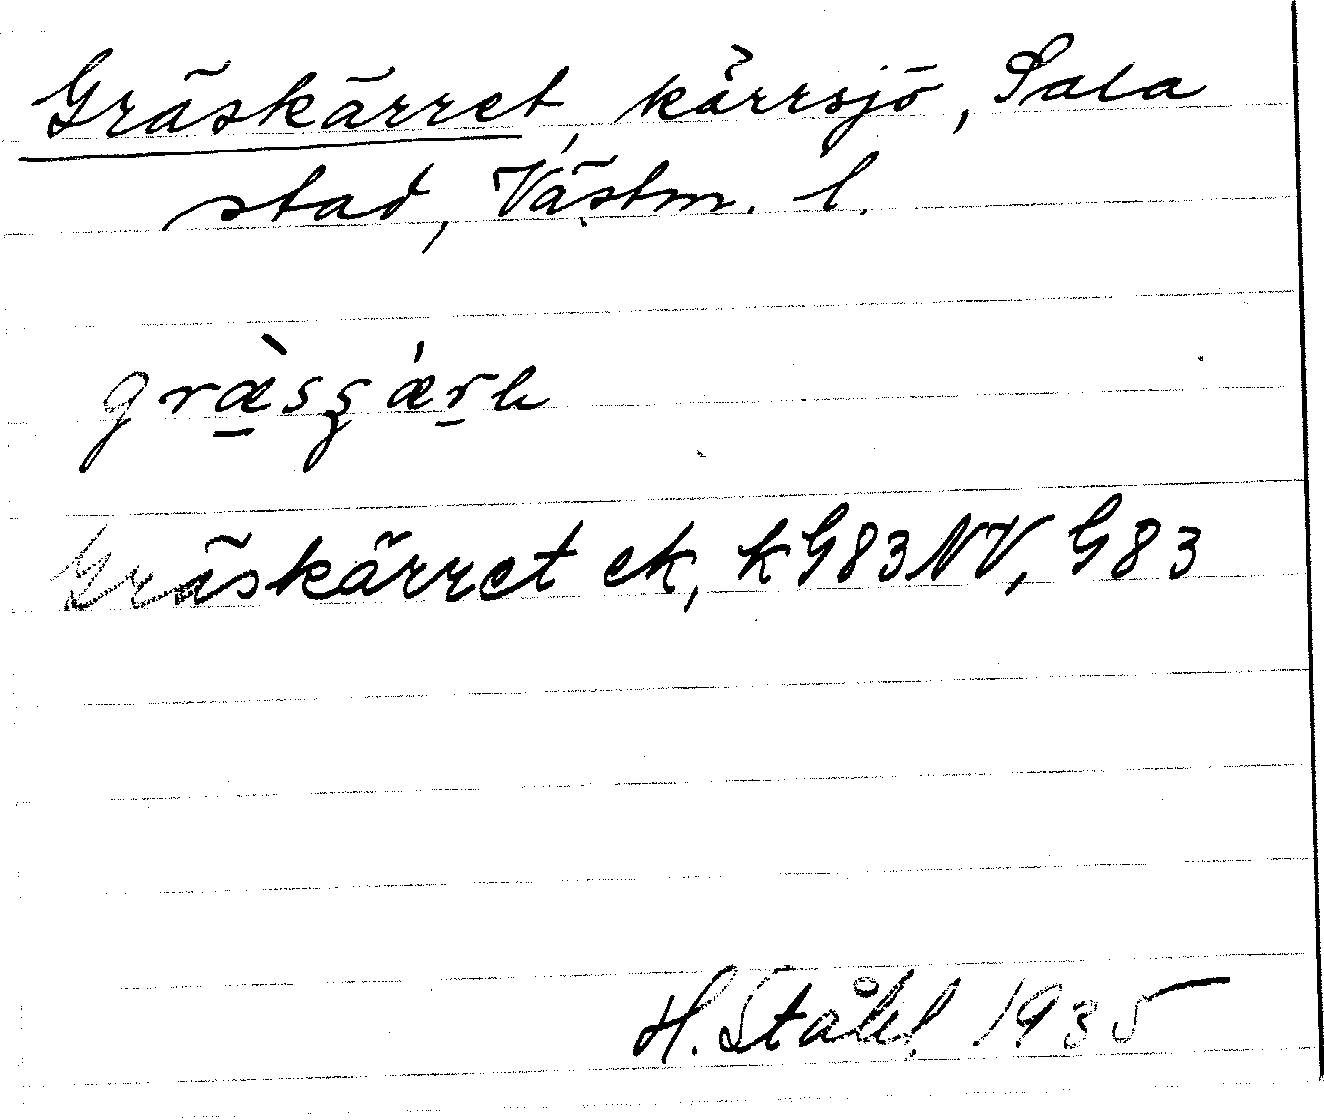 Gräskärret, kärrsjö, Sala
stad, Västm. l.
Gräskärret ek, kG83NV, G83
H. Ståhl 1935